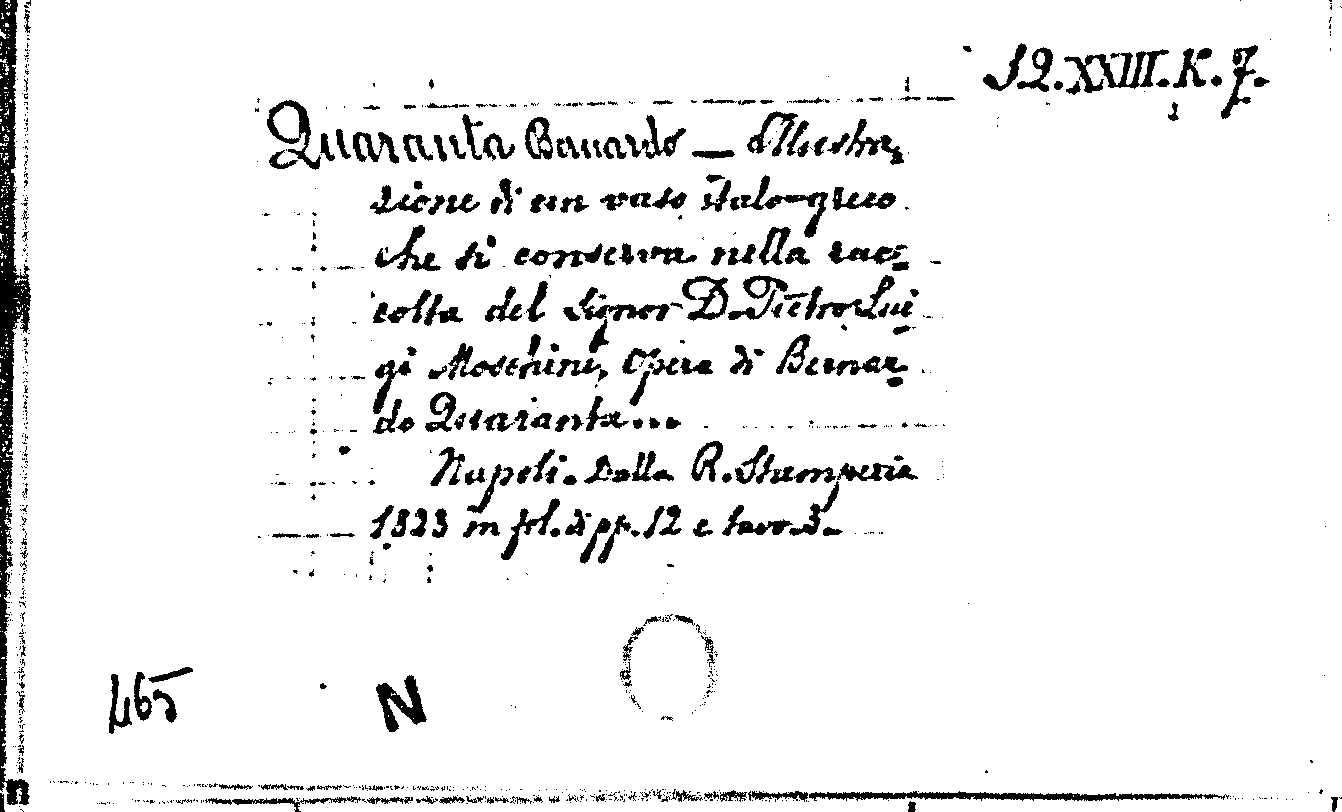 12.XXIII.K.7.
Quaranta Bernardo — Illustra-
zione di un vaso italo-greco
che si conserva nella rac-
colta del Signor D. Pietro Lui
gi Moschini, Opera di Bernar-
do Quaranta...
Napoli. Dalla R. Stamperia
1823 in fol. di pp. 12 e tav. 3.
465
N
n